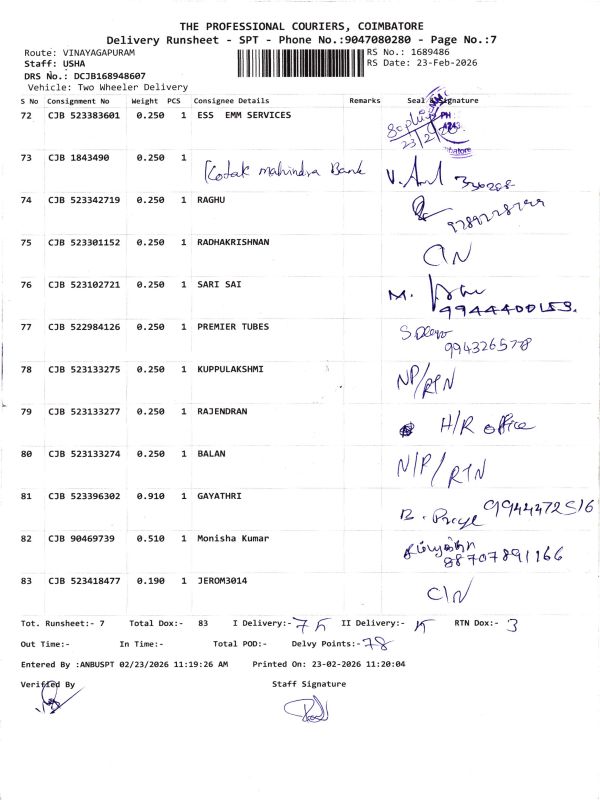 THE PROFESSIONAL COURIERS, COIMBATORE
Delivery Runsheet - SPT - Phone No.:9047080280 - Page No.:7
Route: VINAYAGAPURAM RS No.: 1689486
Staff: USHA RS Date: 23-Feb-2026
DRS No.: DCJB168948607
Vehicle: Two Wheeler Delivery
S No Consignment No Weight PCS Consignee Details Remarks Seal & Signature
72 CJB 523383601 0.250 1 ESS EMM SERVICES
73 CJB 1843490 0.250 1 Kotak mahindra Bank
74 CJB 523342719 0.250 1 RAGHU
75 CJB 523301152 0.250 1 RADHAKRISHNAN C/N
76 CJB 523102721 0.250 1 SARI SAI M.
77 CJB 522984126 0.250 1 PREMIER TUBES
78 CJB 523133275 0.250 1 KUPPULAKSHMI NP/RTN
79 CJB 523133277 0.250 1 RAJENDRAN H/R office
80 CJB 523133274 0.250 1 BALAN N/P/RTN
81 CJB 523396302 0.910 1 GAYATHRI B. 9944472516
82 CJB 90469739 0.510 1 Monisha Kumar 88707891166
83 CJB 523418477 0.190 1 JEROM3014 C/N
Tot. Runsheet:- 7 Total Dox:- 83 I Delivery:- 75 II Delivery:- RTN Dox:- 3
Out Time:- In Time:- Total POD:- Delvy Points:- 78
Entered By :ANBUSPT 02/23/2026 11:19:26 AM Printed On: 23-02-2026 11:20:04
Verified By Staff Signature